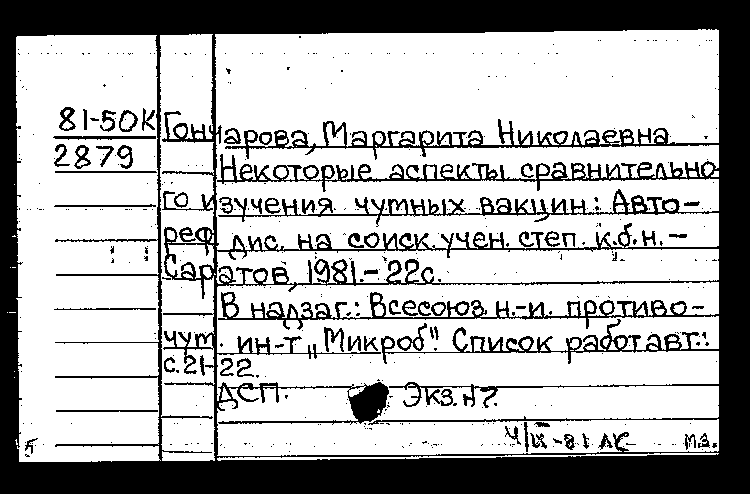 81-50К Гончарова, Маргарита Николаевна
2879 Некоторые аспекты сравнительно
го изучения чумных вакцин: Авто-
реф. дис. на соиск. учен. степ. к.б.н. -
Саратов, 1981. - 22с.
В надзаг.: Всесоюз. н.-и. противо-
чум. ин-т „Микроб". Список работ авт.:
с. 21-22.
ДСП. Экз. №7.
4/IX-81 ЛК М.З.